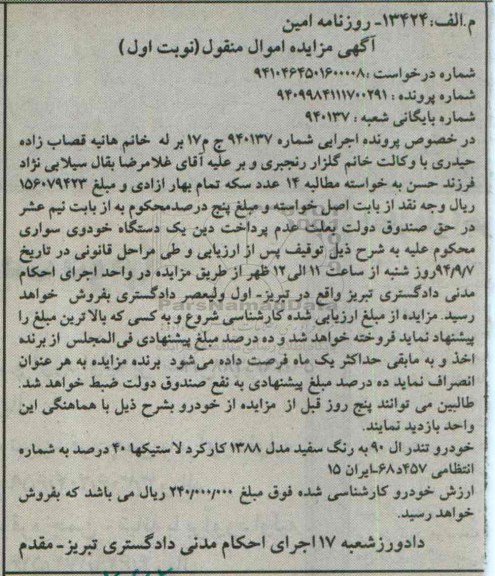 م.الف:۱۳۴۲۴- روزنامه امین
آگهی مزایده اموال منقول (نوبت اول)
شماره درخواست :۹۴۱۰۴۶۴۵۰۱۶۰۰۰۰۸
شماره پرونده : ۹۴۰۹۹۸۴۱۱۱۷۰۰۲۹۱
شماره بایگانی شعبه : ۹۴۰۱۳۷
در خصوص پرونده اجرایی شماره ۹۴۰۱۳۷ ج م۱۷ بر له خانم هانیه قصاب زاده
حیدری با وکالت خانم گلزار رنجبری و بر علیه آقای غلامرضا بقال سیلابی نژاد
فرزند حسن به خواسته مطالبه ۱۴ عدد سکه تمام بهار ازادی و مبلغ ۱۵۶۰۷۹۴۲۳
ریال وجه نقد از بابت اصل خواسته و مبلغ پنج درصدمحکوم به از بابت نیم عشر
در حق صندوق دولت بعلت عدم پرداخت دین یک دستگاه خودوی سواری
محکوم علیه به شرح ذیل توقیف پس از ارزیابی و طی مراحل قانونی در تاریخ
۹۴/۹/۷روز شنبه از ساعت ۱۱ الی۱۲ ظهر از طریق مزایده در واحد اجرای احکام
مدنی دادگستری تبریز واقع در تبریز- اول ولیعصر دادگستری بفروش خواهد
رسید. مزایده از مبلغ ارزیابی شده کارشناسی شروع و به کسی که بالا ترین مبلغ را
پیشنهاد نماید فروخته خواهد شد و ده درصد مبلغ پیشنهادی فی المجلس از برنده
اخذ و به مابقی حداکثر یک ماه فرصت داده می شود برنده مزایده به هر عنوان
انصراف نماید ده درصد مبلغ پیشنهادی به نفع صندوق دولت ضبط خواهد شد.
طالبین می توانند پنج روز قبل از مزایده از خودرو بشرح ذیل با هماهنگی این
واحد بازدید نمایند.
خودرو تندر ال ۹۰ به رنگ سفید مدل ۱۳۸۸ کارکرد لاستیکها ۴۰ درصد به شماره
انتظامی ۴۵۷د۶۸-ایران ۱۵
ارزش خودرو کارشناسی شده فوق مبلغ ۲۴۰/۰۰۰/۰۰۰ ریال می باشد که بفروش
خواهد رسید.
دادورزشعبه ۱۷ اجرای احکام مدنی دادگستری تبریز- مقدم